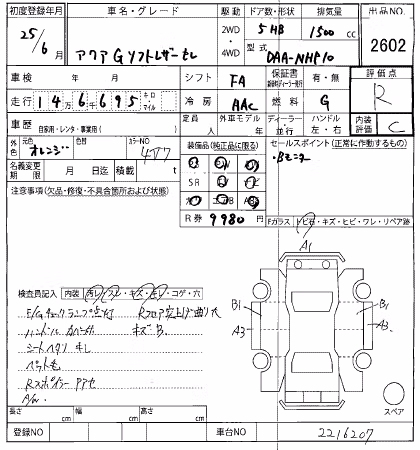 初度登録年月 車名・グレード 駆動 ドア数・形状 排気量 出品NO.
25/6月 アクア G ソフトレザーセレ 2WD・4WD 5HB 1500cc 2602
型式 DAA-NHP10
車検 年 月 シフト FA 保証書 有・無 評価点
走行 146,695 キロ マイル 冷房 AAC 燃料 G R
車歴 自家用・レンタ・事業用( ) 定員 人 外車モデル 年 ディーラー・並行 ハンドル 左・右 内装評価 C
外色 元色 オレンジ 色替 カラーNO 4R7 装備品(純正品に限る) セールスポイント(正常に作動するもの)
・Bモニター
名義変更期限 月 日迄 積載 t SR
注意事項(欠品・修復・不具合箇所および状態)
R券 9980円
Fガラス トビ石・キズ・ヒビ・ワレ・リペア跡
A1
検査員記入 内装 汚レ・スレ・キズ・キレ・コゲ・穴
E/Gチェックランプ点灯 Rフロア突上げ曲り大
ハンドル カバー付 キズB
シートヘタリ キレ
ペット毛
Rスポイラー アセ
A/W
B1 A3 B1 A3
スペア
長さ cm 幅 cm 高さ cm
登録NO 車台NO 2216207